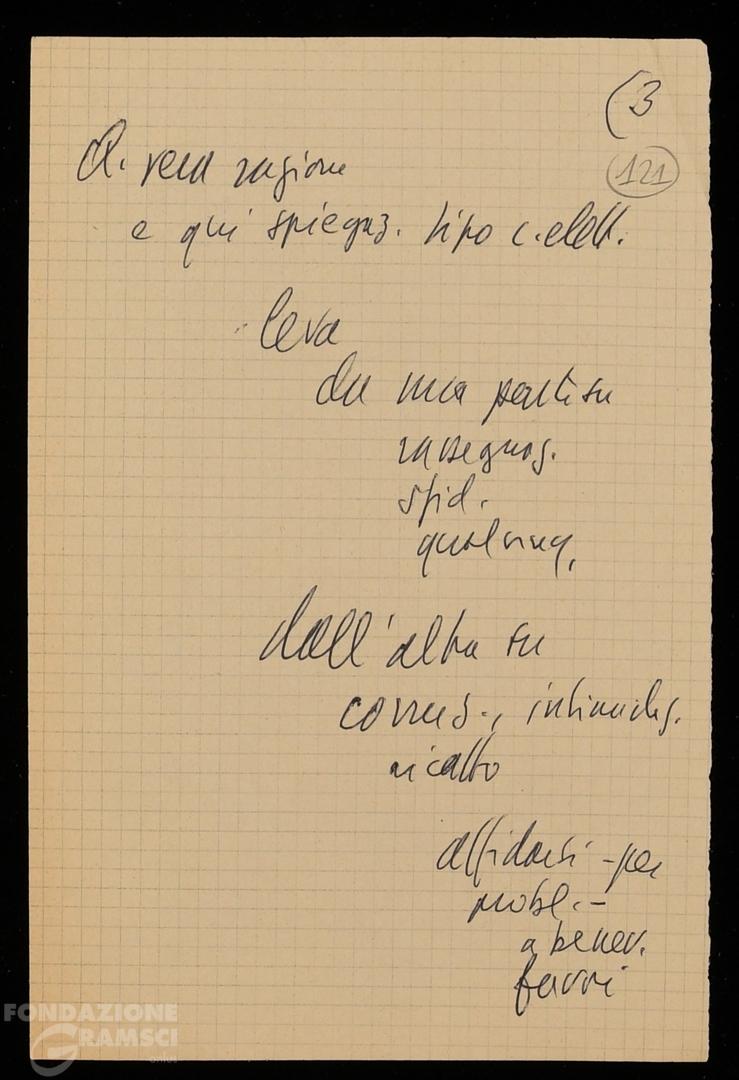 (3
121
Q. vera ragione
e qui spiegaz. tipo c. elett.
leva
da una parte su
rassegnaz.
sfid.
qualunq.
dall'altra su
corruz., intimidaz.
ricatto
affidarsi - per
probl. -
a benev.
favori
FONDAZIONE
GRAMSCI
onlus